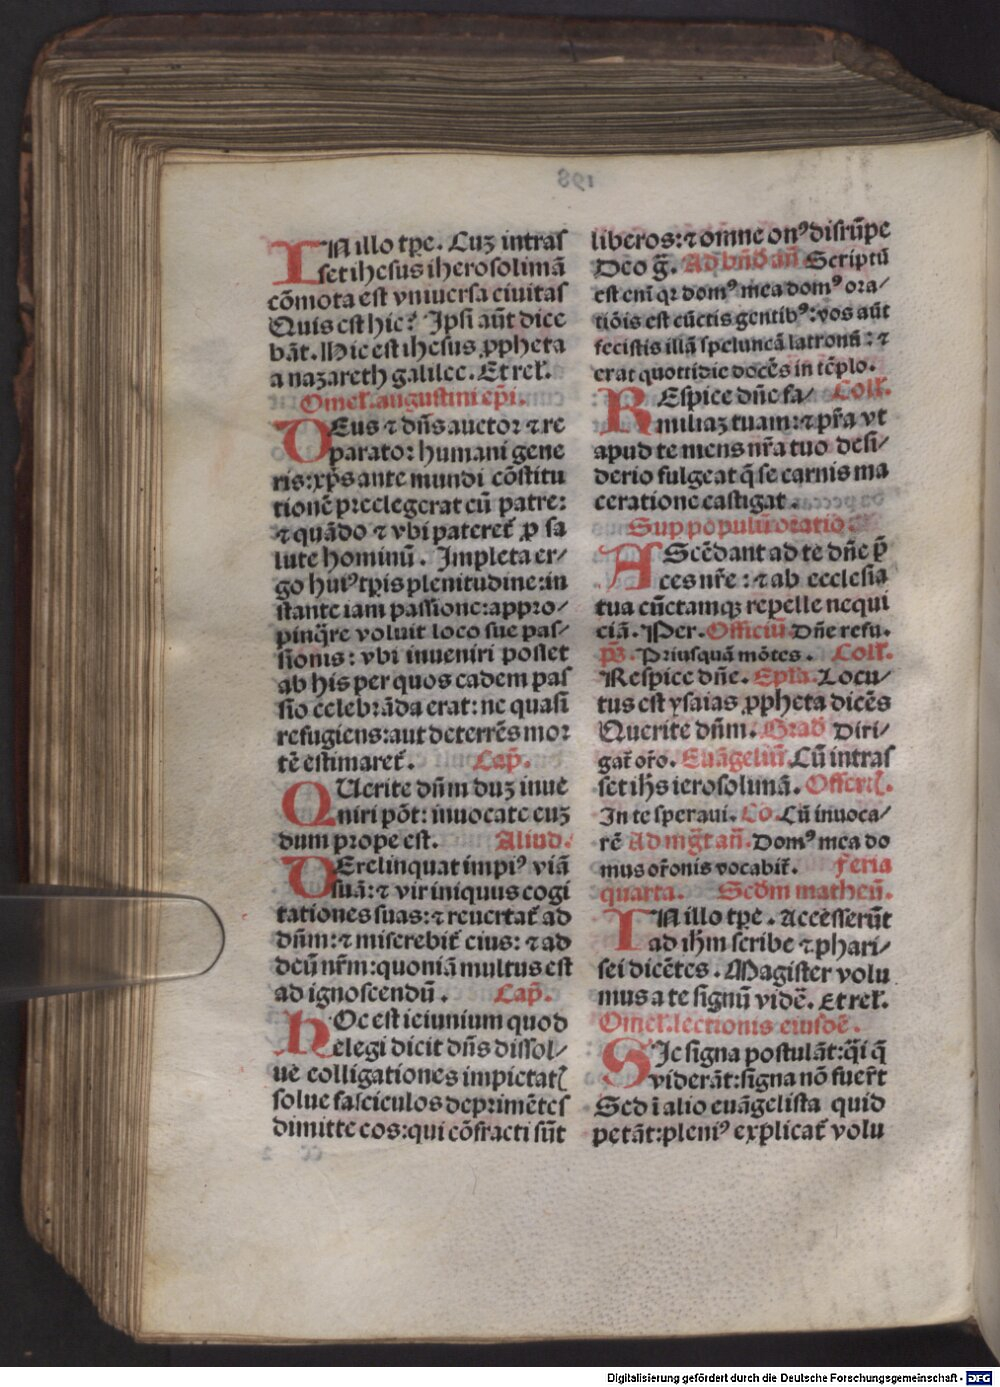 IN illo tp̄e. Cuꝫ intras
set ihesus iherosolimā
cōmota est vniuersa ciuitas
Quis est hic? Ipsi aūt dice
bāt. Hic est ihesus ꝓpheta
a nazareth galilee. Et rel'.
Omel'. augustini ep̄i.
DEus ⁊ dn̄s auctor ⁊ re
parator humani gene
ris: xp̄s ante mundi cōstitu
tionē preelegerat cū patre:
⁊ quādo ⁊ vbi pateret̄ ꝓ sa
lute hominū. Impleta er/
go huiꝰ tp̄is plenitudine: in
stante iam passione: appro/
pinq̄re voluit loco sue pas/
sionis: vbi inueniri posset
ab his per quos eadem pas
sio celebrāda erat: ne quasi
refugiens: aut deterrēs mor
tē estimaret̄. Cap̄.
QUerite dn̄m duꝫ inue
niri pōt: inuocate euꝫ
dum prope est. Aliud.
DErelinquat impiꝰ viā
suā: ⁊ vir iniquus cogi
tationes suas: ⁊ reuertat̄ ad
dn̄m: ⁊ miserebit̄ eius: ⁊ ad
deū nr̄m: quoniā multus est
ad ignoscendū. Cap̄.
HOc est ieiunium quod
elegi dicit dn̄s dissol/
ue colligationes impietatꝭ
solue fasciculos deprimētes
dimitte eos: qui cōfracti sūt
liberos: ⁊ omne onꝰ disrūpe
Deo gr̄. Ad bn̄d̄ an̄ Scriptū
est eni qr domꝰ mea domꝰ ora/
tiōis est cūctis gentibꝰ: vos aūt
fecistis illā speluncā latronū: ⁊
erat quottidie docēs in tēplo.
REspice dn̄e fa/ Coll'.
miliaꝫ tuam: ⁊ p̄ra vt
apud te mens nr̄a tuo desi/
derio fulgeat q̄ se carnis ma
ceratione castigat.
Sup populū oratio.
AScēdant ad te dn̄e p̄
ces nr̄e: ⁊ ab ecclesia
tua cūctamqꝫ repelle nequi
ciā. Per. Officiū. Dn̄e refu.
p̄s. Priusquā mōtes. Coll'.
Respice dn̄e. Epl'a. Locu/
tus est ysaias ꝓpheta dicēs
Querite dn̄m. Grad̄ Diri/
gat̄ or̄o. Euāgeliū. Cū intras
set ih̄s ierosolimā. Offertꝭ.
In te speraui. Co. Cū inuoca/
rē Ad mgt̄ an̄. Domꝰ mea do
mus or̄onis vocabit̄. Feria
quarta. Scd̄m matheū.
IN illo tp̄e. Accesserūt
ad ih̄m scribe ⁊ phari/
sei dicētes. Magister volu
mus a te signū videre. Et rel'.
Omel'. lectionis eiusdē.
SIc signa postulāt: q̄si q̄
viderāt: signa nō fuer̄t
Sed ī alio euāgelista quid
petāt: pleniꝰ explicat̄ volu
Digitalisierung gefördert durch die Deutsche Forschungsgemeinschaft - DFG